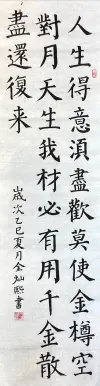 人生得意須盡歡莫使金樽空
對月天生我材必有用千金散
盡還復来
歲次乙巳夏月金灿熙書